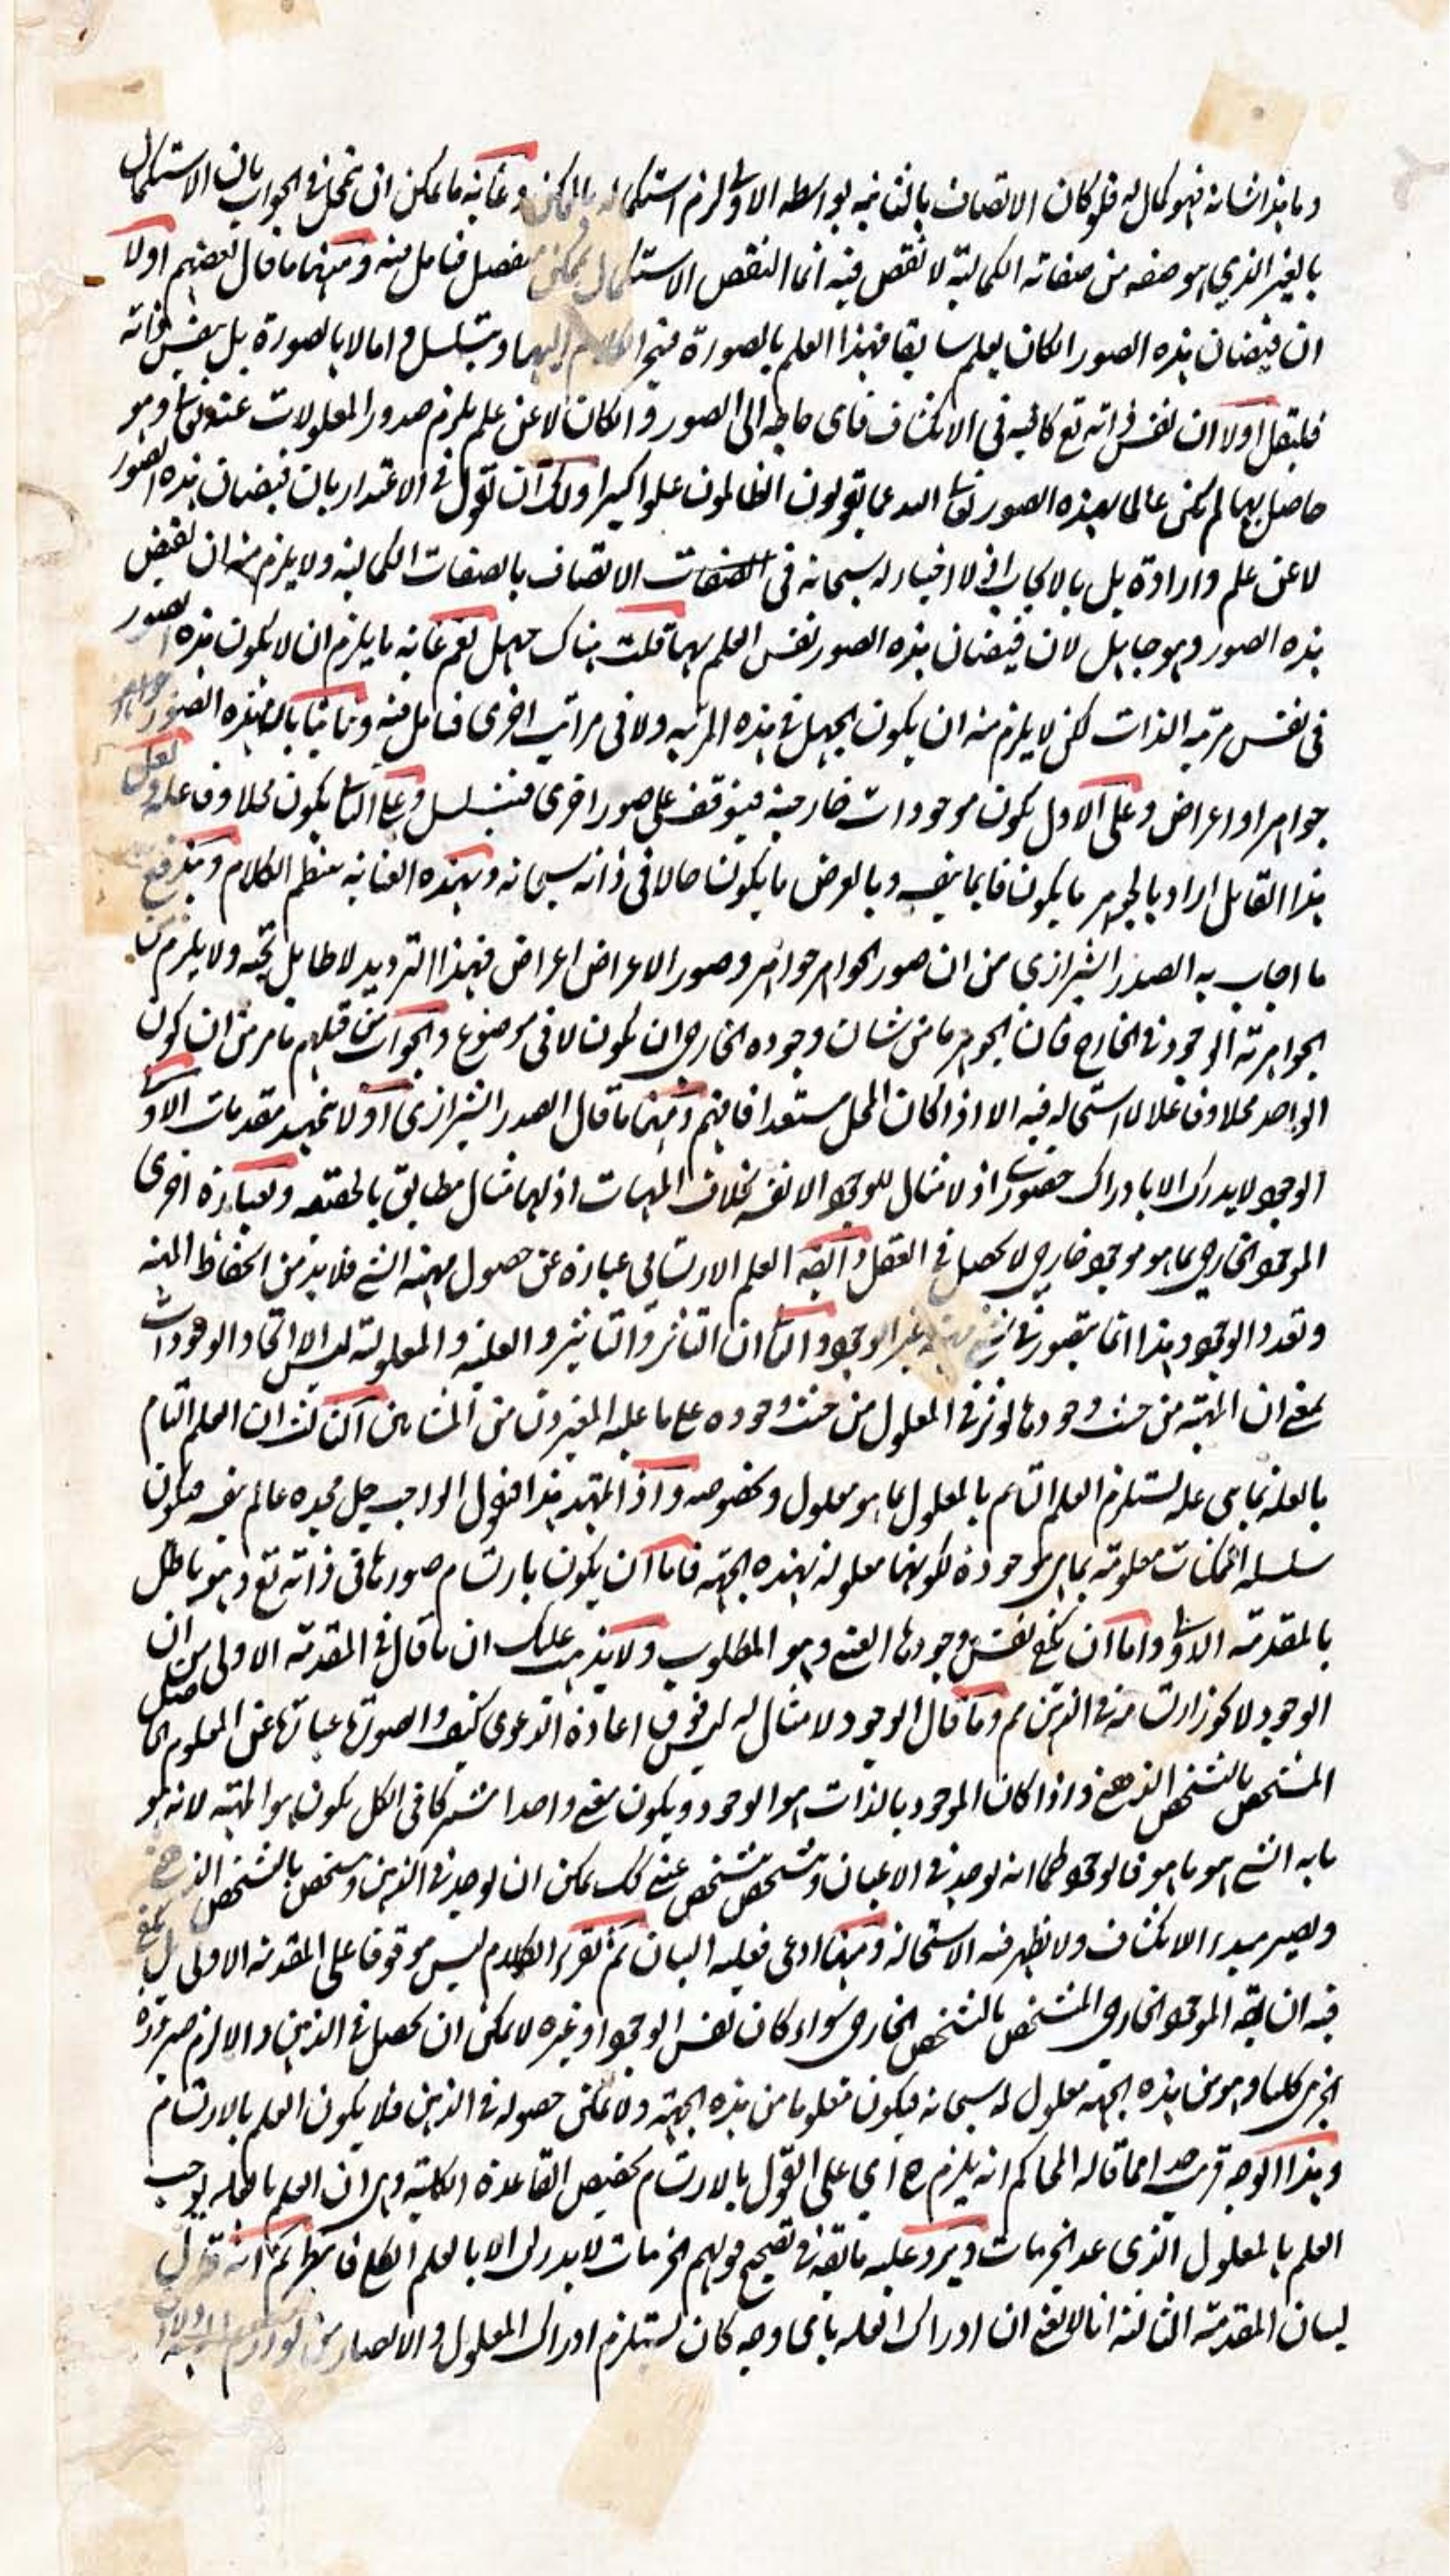 وما هذا شانه فهو كمال له فلو كان الاتصاف بالثانية بواسطه الاولى لزم استكماله بالممكن وغاية ما يمكن ان يتمحل في الجواب بان الاستكمال
بالغير الذي هو صفه من صفاته الكمالية لا نقص فيه انما النقص الاستكمال بممكن منفصل فتامل فيه ومنها ما قال بعضهم اولا
ان فيضان هذه الصور ان كان بعلم سابق فهذا العلم بالصورة فيجر الكلام اليها ويتسلسل واما لا بالصورة بل بنفس ذاته
فليقل اولا ان نفس ذاته تع كافيه في الانكشاف فاى حاجه الى الصور وان كان لا عن علم يلزم صدور المعلولات عنه تعالى وهو
جاهل بها لم يكن عالما بهذه الصور تعالى الله عما يقولون الظالمون علوا كبيرا ولك ان تقول في الاعتذار بان فيضان هذه الصور
لا عن علم وارادة بل بالايجاب اذ لا اختيار له سبحانه في الصفات الاتصاف بالصفات الكمالية ولا يلزم منه ان تفيض
هذه الصور وهو جاهل لان فيضان هذه الصور نفس العلم بها قلت هناك جهل نعم غاية ما يلزم ان لا يكون هذه الصور
في نفس مرتبه الذات لكن لا يلزم منه ان يكون الجهل في هذه المرتبه ولا في مراتب اخرى فتامل فيه وثانيا بان هذه الصور
جواهر او اعراض وعلى الاول يكون موجودات خارجية فيتوقف على صور اخرى فيتسلسل وعلى الثانى يكون محلا وفاعلا ولعل
هذا القايل اراد بالجوهر ما يكون قايما بنفسه وبالعرض ما يكون حالا في ذاته سبحانه وبهذه العناية ينتظم الكلام ويندفع
ما اجاب به الصدر الشيرازي من ان صور الجواهر جواهر وصور الاعراض اعراض فهذا الترديد لا طايل تحته ولا يلزم من
الجواهرية الوجود في الخارج فان الجوهر ما من شان وجوده الخارجى ان يكون لا في موضوع والجواب من قبلهم ما مر من ان كون
الواحد محلا وفاعلا لا استحاله فيه الا اذا كان المحل مستعدا فافهم ومنها ما قال الصدر الشيرازى اولا تمهيد مقدمات الاولى
الوجود لا يدرك الا بادراك حضورى اذ لا مثال للوجود الا نفسه بخلاف المهيات اذ لها مثال مطابق بالحقيقه وبعبارة اخرى
الموجود الخارجى بما هو موجود خارجى لا يحصل في العقل وايضه العلم الارتسامي عبارة عن حصول مهية الشئ فلا بد من انحفاظ المهية
وتعدد الوجود وهذا انما يتصور في شئ مهيته غير الوجود والثانى ان التاثر والتاثير والعلية والمعلولية ليس الا اتحاد الوجودات
بمعنى ان المهية من حيث وجودها تؤثر في المعلول من حيث وجوده على ما عليه المعتبرون من المشائين الثالث ان العلم التام
بالعلة بما هى علة يستلزم العلم التام بالمعلول بما هو معلول وبخصوصه واذ تمهد هذا فنقول الواجب جل مجده عالم بنفسه فيكون
سلسلة الممكنات معلومة بما هى موجودة لكونها معلولة بهذه الجهة فاما ان يكون بارتسام صورها في ذاته تع وهو باطل
بالمقدمة الاولى واما ان يكفي نفس وجودها العينى وهو المطلوب ولا يذهب عليك ان ما قال في المقدمة الاولى من ان
الوجود لا يجوز ارتسامه في الذهن مم وما قال الوجود لا مثال له ليس فوق اعادة الدعوى كيف والصورة عبارة عن المعلوم
المشخص بالتشخص الذهنى واذا كان الموجود بالذات هو الوجود ويكون معنى واحدا مشتركا في الكل يكون هو المهية لانه هو
ما به الشئ هو ما هو فالوجود كما انه يوجد في الاعيان ويتشخص بتشخص عينى كك يمكن ان يوجد في الذهن ويتشخص بالتشخص الذهنى
ويصير مبدء الانكشاف ولا يظهر فيه الاستحالة ومن ادعى فعليه البيان ثم تقرير الكلام ليس موقوفا على المقدمة الاولى بل يكفي
فيه ان يقه الموجود الخارجى المتشخص بالتشخص الخارجى سواء كان نفس الوجود او غيره لا يمكن ان يحصل في الذهن والا لزم صيرورة
الجزئى كليا وهو من هذه الجهة معلول له سبحانه فيكون معلوما من هذه الجهة ولا يمكن حصوله في الذهن فلا يكون العلم بالارتسام
وهذا الوجه قريب جدا مما قاله المحاكم انه يلزم ح اي على القول بالارتسام تخصيص القاعدة الكلية وهى ان العلم بالعلة يوجب
العلم بالمعلول الذى عد الجزئيات ويرد عليه ما يقه في تصحيح قولهم الجزئيات لا يدرك الا بالعلم الكلى فانتظر ثم انه قد قال
لبيان المقدمة الثالثة انا لا نعنى ان ادراك العلة باى وجه كان يستلزم ادراك المعلول والا لصار من لوازم